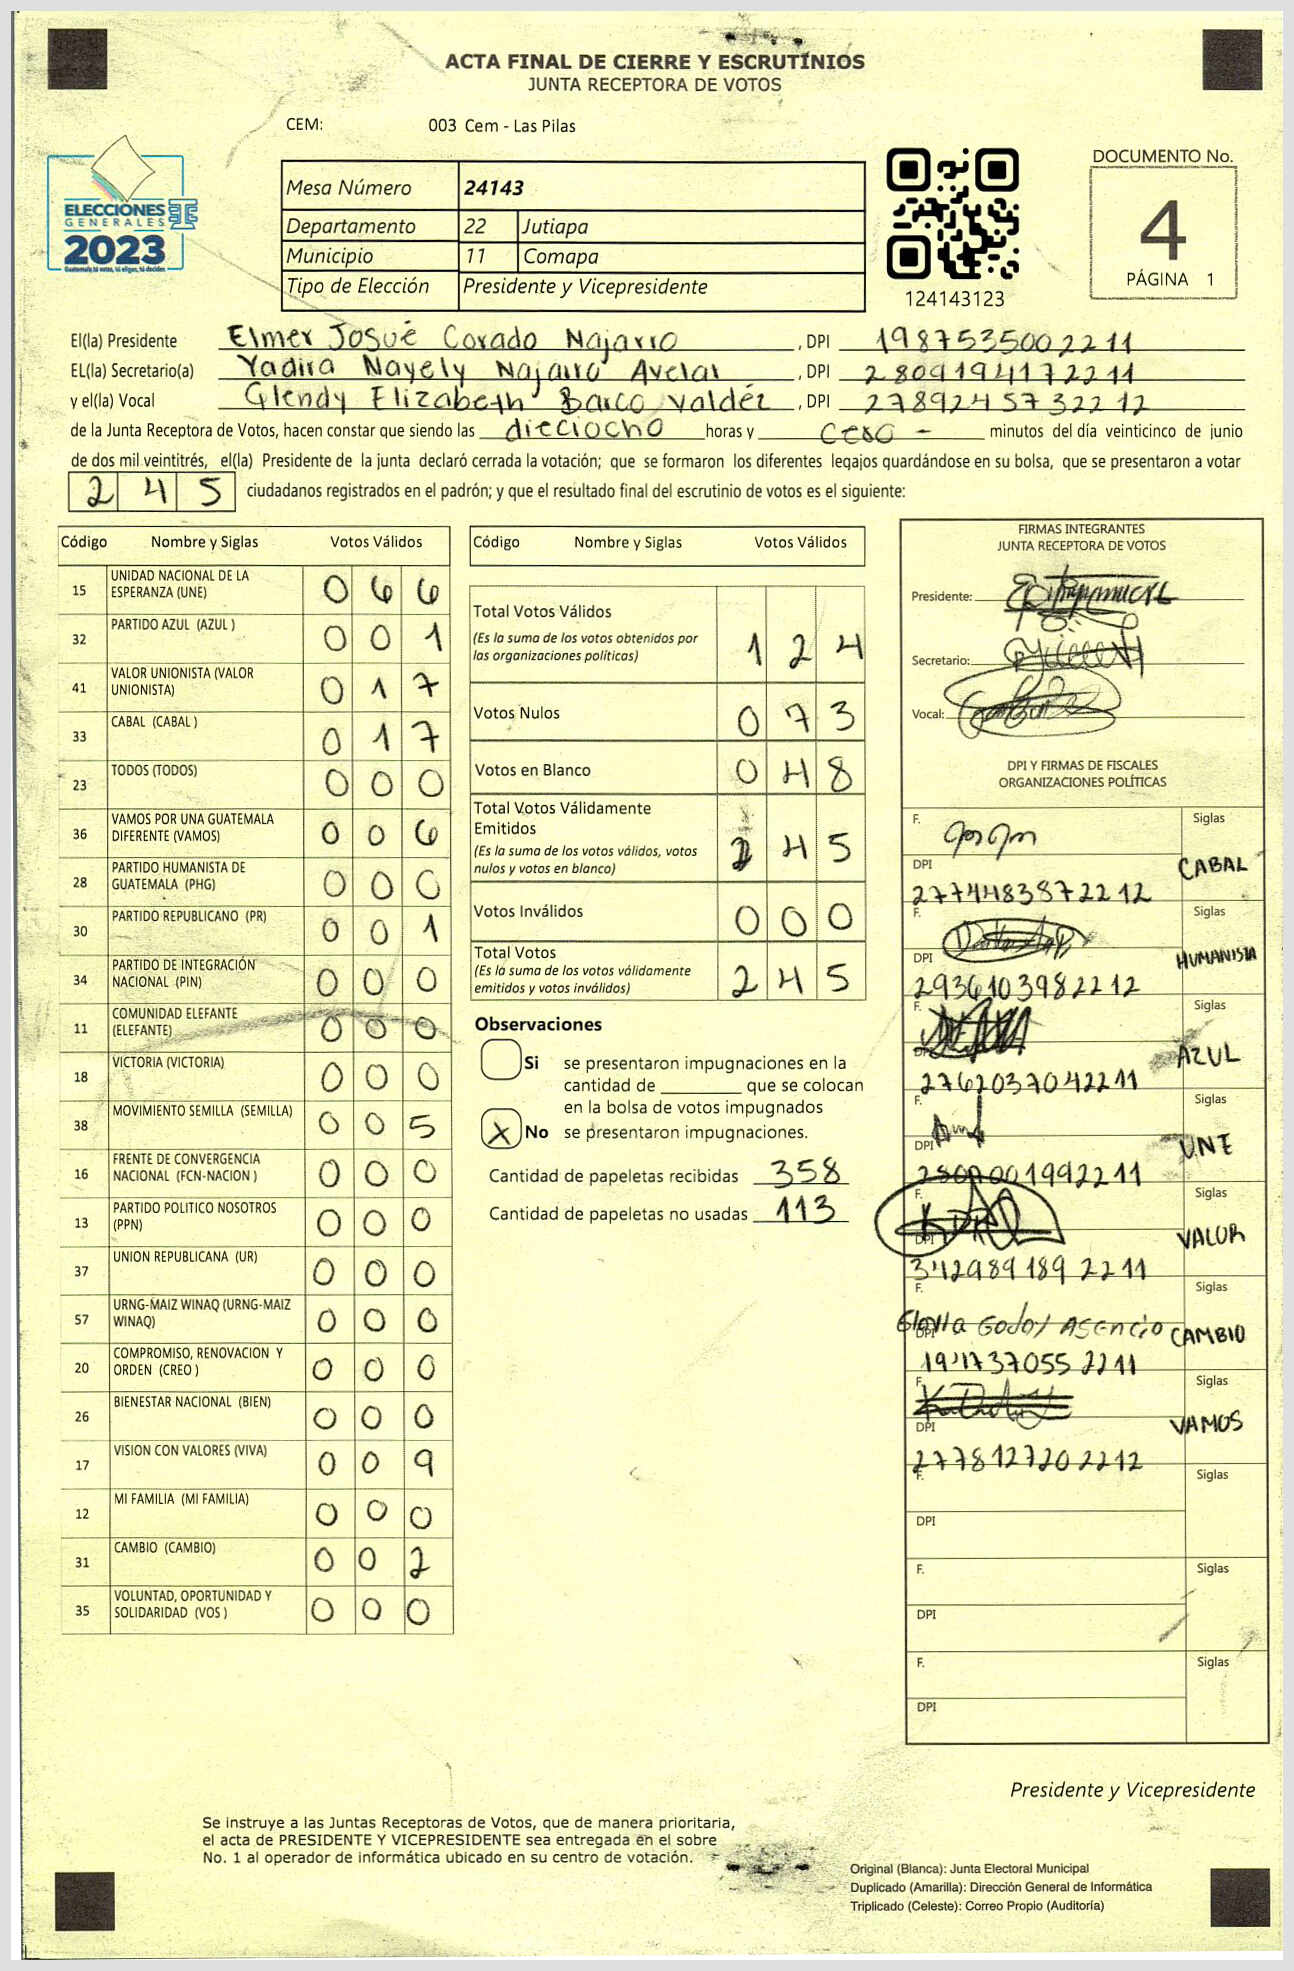 ACTA FINAL DE CIERRE Y ESCRUTINIOS
JUNTA RECEPTORA DE VOTOS
CEM: 003 Cem - Las Pilas
ELECCIONES
GENERALES
2023
Guatemala, tú votas, tú eliges, tú decides
Mesa Número 24143
Departamento 22 Jutiapa
Municipio 11 Comapa
Tipo de Elección Presidente y Vicepresidente
124143123
DOCUMENTO No.
4
PÁGINA 1
El(la) Presidente Elmer Josué Corado Najarro , DPI 1987535002211
EL(la) Secretario(a) Yadira Nayely Najarro Avelar , DPI 2809194172211
y el(la) Vocal Glendy Elizabeth Barco Valdéz , DPI 2789245732212
de la Junta Receptora de Votos, hacen constar que siendo las dieciocho horas y cero - minutos del día veinticinco de junio
de dos mil veintitrés, el(la) Presidente de la junta declaró cerrada la votación; que se formaron los diferentes legajos quardándose en su bolsa, que se presentaron a votar
245 ciudadanos registrados en el padrón; y que el resultado final del escrutinio de votos es el siguiente:
Código Nombre y Siglas Votos Válidos
15 UNIDAD NACIONAL DE LA ESPERANZA (UNE) 0 6 6
32 PARTIDO AZUL (AZUL ) 0 0 1
41 VALOR UNIONISTA (VALOR UNIONISTA) 0 1 7
33 CABAL (CABAL ) 0 1 7
23 TODOS (TODOS) 0 0 0
36 VAMOS POR UNA GUATEMALA DIFERENTE (VAMOS) 0 0 6
28 PARTIDO HUMANISTA DE GUATEMALA (PHG) 0 0 0
30 PARTIDO REPUBLICANO (PR) 0 0 1
34 PARTIDO DE INTEGRACIÓN NACIONAL (PIN) 0 0 0
11 COMUNIDAD ELEFANTE (ELEFANTE) 0 0 0
18 VICTORIA (VICTORIA) 0 0 0
38 MOVIMIENTO SEMILLA (SEMILLA) 0 0 5
16 FRENTE DE CONVERGENCIA NACIONAL (FCN-NACION ) 0 0 0
13 PARTIDO POLITICO NOSOTROS (PPN) 0 0 0
37 UNION REPUBLICANA (UR) 0 0 0
57 URNG-MAIZ WINAQ (URNG-MAIZ WINAQ) 0 0 0
20 COMPROMISO, RENOVACION Y ORDEN (CREO ) 0 0 0
26 BIENESTAR NACIONAL (BIEN) 0 0 0
17 VISION CON VALORES (VIVA) 0 0 9
12 MI FAMILIA (MI FAMILIA) 0 0 0
31 CAMBIO (CAMBIO) 0 0 2
35 VOLUNTAD, OPORTUNIDAD Y SOLIDARIDAD (VOS ) 0 0 0
Código Nombre y Siglas Votos Válidos
Total Votos Válidos 1 2 4
(Es la suma de los votos obtenidos por
las organizaciones políticas)
Votos Nulos 0 7 3
Votos en Blanco 0 4 8
Total Votos Válidamente
Emitidos 2 4 5
(Es la suma de los votos válidos, votos
nulos y votos en blanco)
Votos Inválidos 0 0 0
Total Votos 2 4 5
(Es la suma de los votos válidamente
emitidos y votos inválidos)
Observaciones
Si se presentaron impugnaciones en la
cantidad de ________ que se colocan
en la bolsa de votos impugnados
X No se presentaron impugnaciones.
Cantidad de papeletas recibidas 358
Cantidad de papeletas no usadas 113
FIRMAS INTEGRANTES
JUNTA RECEPTORA DE VOTOS
Presidente:
Secretario:
Vocal:
DPI Y FIRMAS DE FISCALES
ORGANIZACIONES POLÍTICAS
F. Siglas
DPI CABAL
2774483872212
F. Siglas
DPI HUMANISTA
2936103982212
F. Siglas
DPI AZUL
2762037042211
F. Siglas
DPI UNE
F. Siglas
DPI VALOR
3429891892211
F. Siglas
Gloria Godoy Asencio CAMBIO
DPI
F. Siglas
DPI VAMOS
2778127202212
F. Siglas
DPI
F. Siglas
DPI
F. Siglas
DPI
Presidente y Vicepresidente
Se instruye a las Juntas Receptoras de Votos, que de manera prioritaria,
el acta de PRESIDENTE Y VICEPRESIDENTE sea entregada en el sobre
No. 1 al operador de informática ubicado en su centro de votación.
Original (Blanca): Junta Electoral Municipal
Duplicado (Amarilla): Dirección General de Informática
Triplicado (Celeste): Correo Propio (Auditoría)